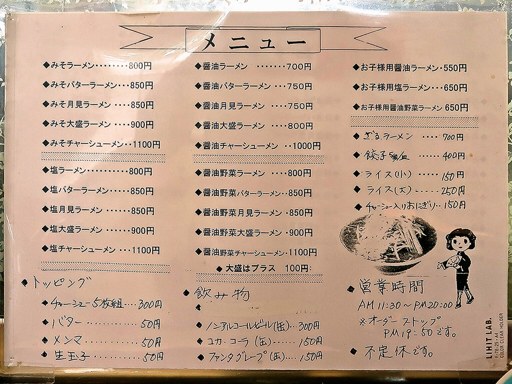 メニュー
◆みそラーメン………800円
◆みそバターラーメン…850円
◆みそ月見ラーメン……850円
◆みそ大盛ラーメン……900円
◆みそチャーシューメン…1100円
◆塩ラーメン…………800円
◆塩バターラーメン……850円
◆塩月見ラーメン………850円
◆塩大盛ラーメン………900円
◆塩チャーシューメン…1100円
◆トッピング
◆チャーシュー5枚組…300円
◆バター………50円
◆メンマ………50円
◆生玉子………50円
◆醤油ラーメン………700円
◆醤油バターラーメン…750円
◆醤油月見ラーメン……750円
◆醤油大盛ラーメン……800円
◆醤油チャーシューメン…1000円
◆醤油野菜ラーメン……800円
◆醤油野菜バターラーメン…850円
◆醤油野菜月見ラーメン…850円
◆醤油野菜大盛ラーメン…900円
◆醤油野菜チャーシューメン…1100円
◆大盛はプラス 100円
◆飲み物
◆ノンアルコールビール(缶)…300円
◆コカ・コーラ(缶)……150円
◆ファンタグレープ(缶)…150円
◆お子様用醤油ラーメン…550円
◆お子様用塩ラーメン…650円
◆お子様用醤油野菜ラーメン…650円
◆ざるラーメン……700円
◆餃子……400円
◆ライス(小)……150円
◆ライス(大)……250円
◆チャーシュー入りおにぎり…150円
◆営業時間
AM11:30~PM20:00
※オーダーストップ
PM19:50です。
◆不定休です。
LIHIT LAB.